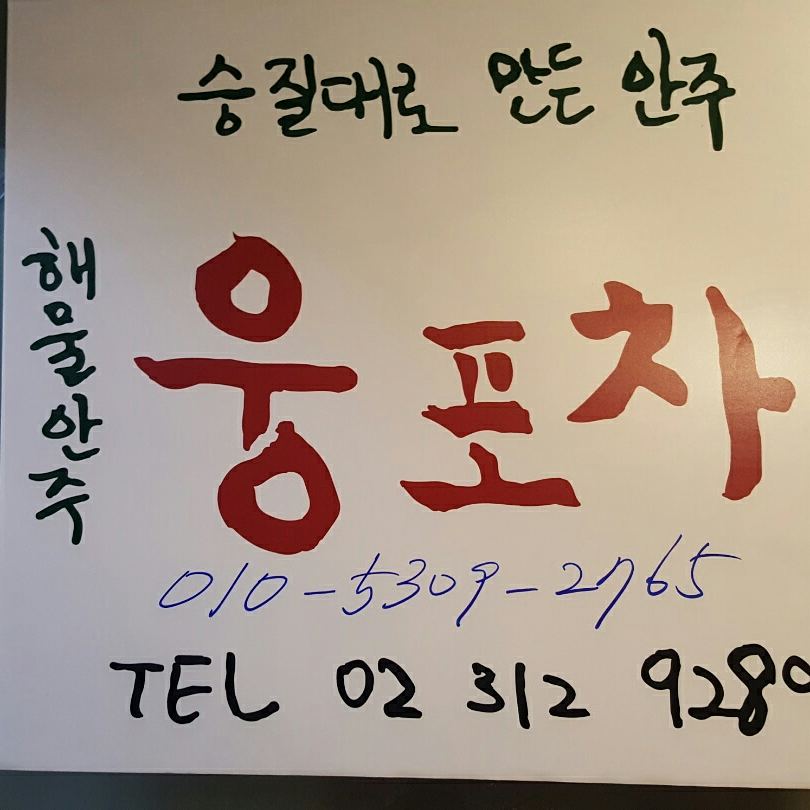 승질대로 만든 안주
해물안주
웅포차
010-5309-2765
TEL 02 312 9280